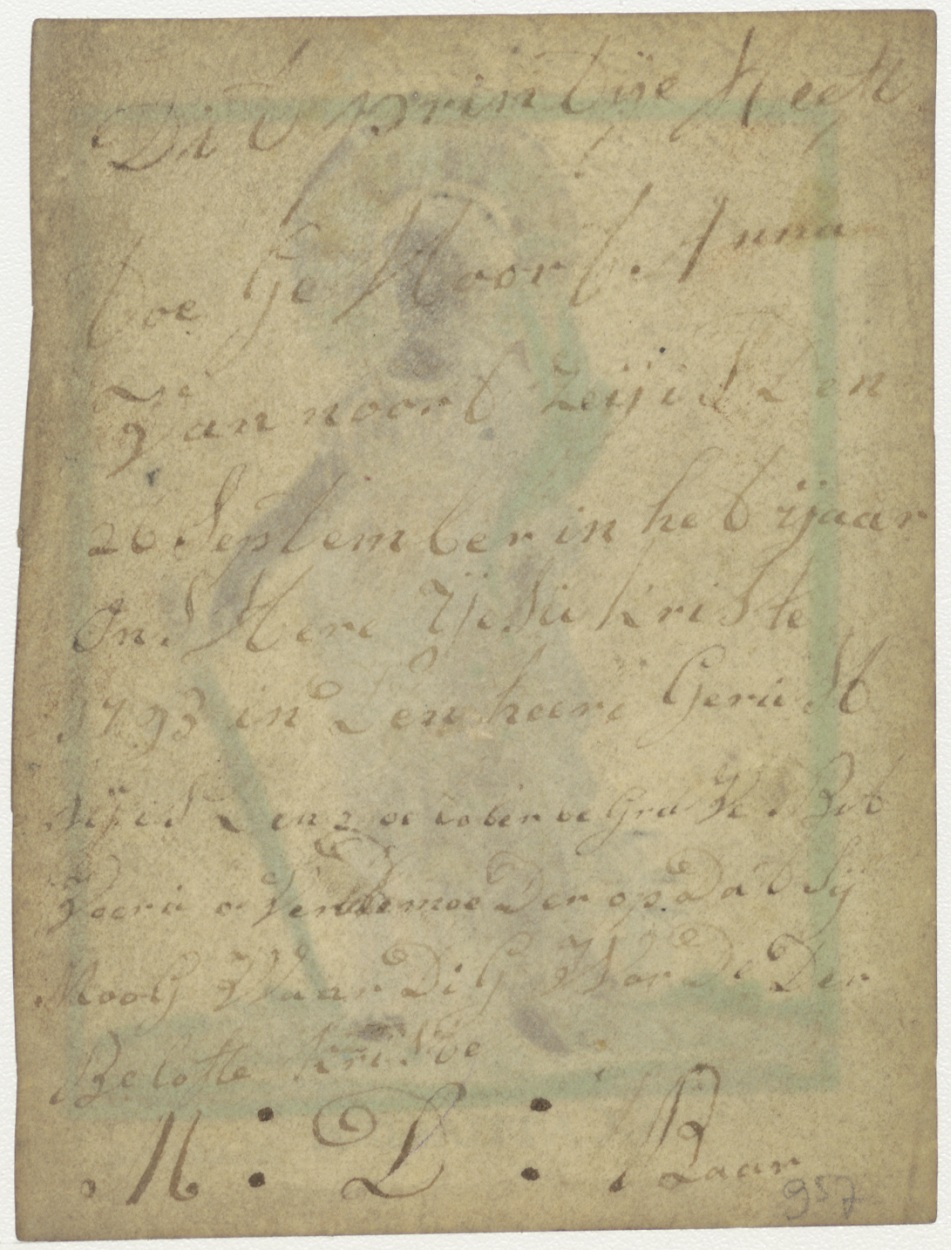 Dit printije Heeft
toe ge Hoort. Anna
Van noort zeij is Den
26 September in het ijaar
Ons Here ijesu kriste
1793 in Den heere Gerust
sij is Den 2 october be Gra Ve Bit
Voor
Moog Waar Di G Wor De Der
Belofte kriste
M : D : B Baar
957